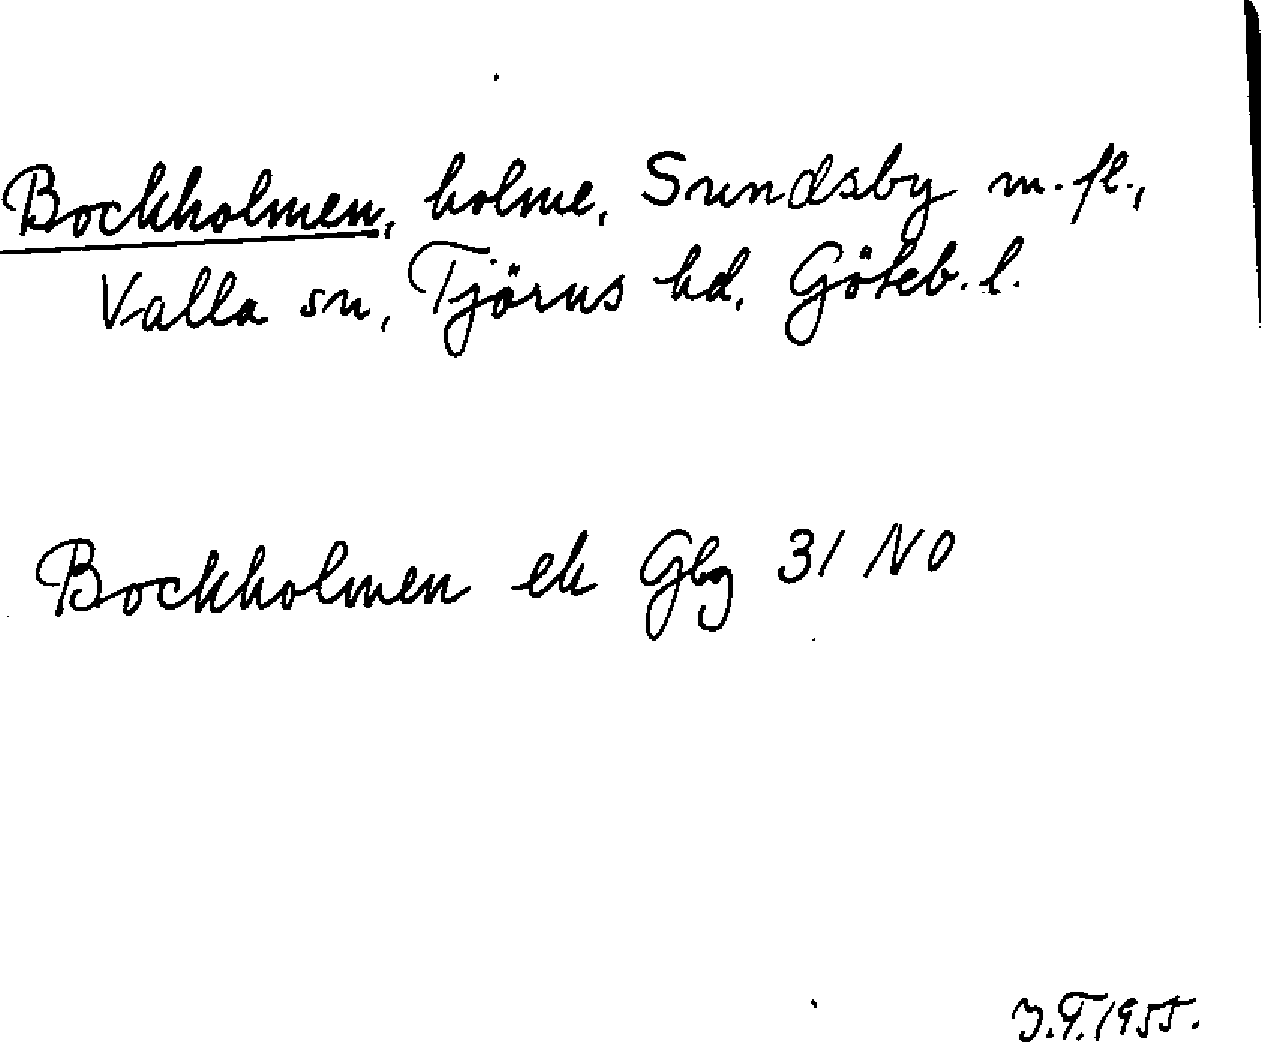 Bockholmen, holme, Sundsby m. fl.,
Valla sn, Tjörns hd, Göteb. l.
Bockholmen ek Gbg 31 NO
J.T. 1955.